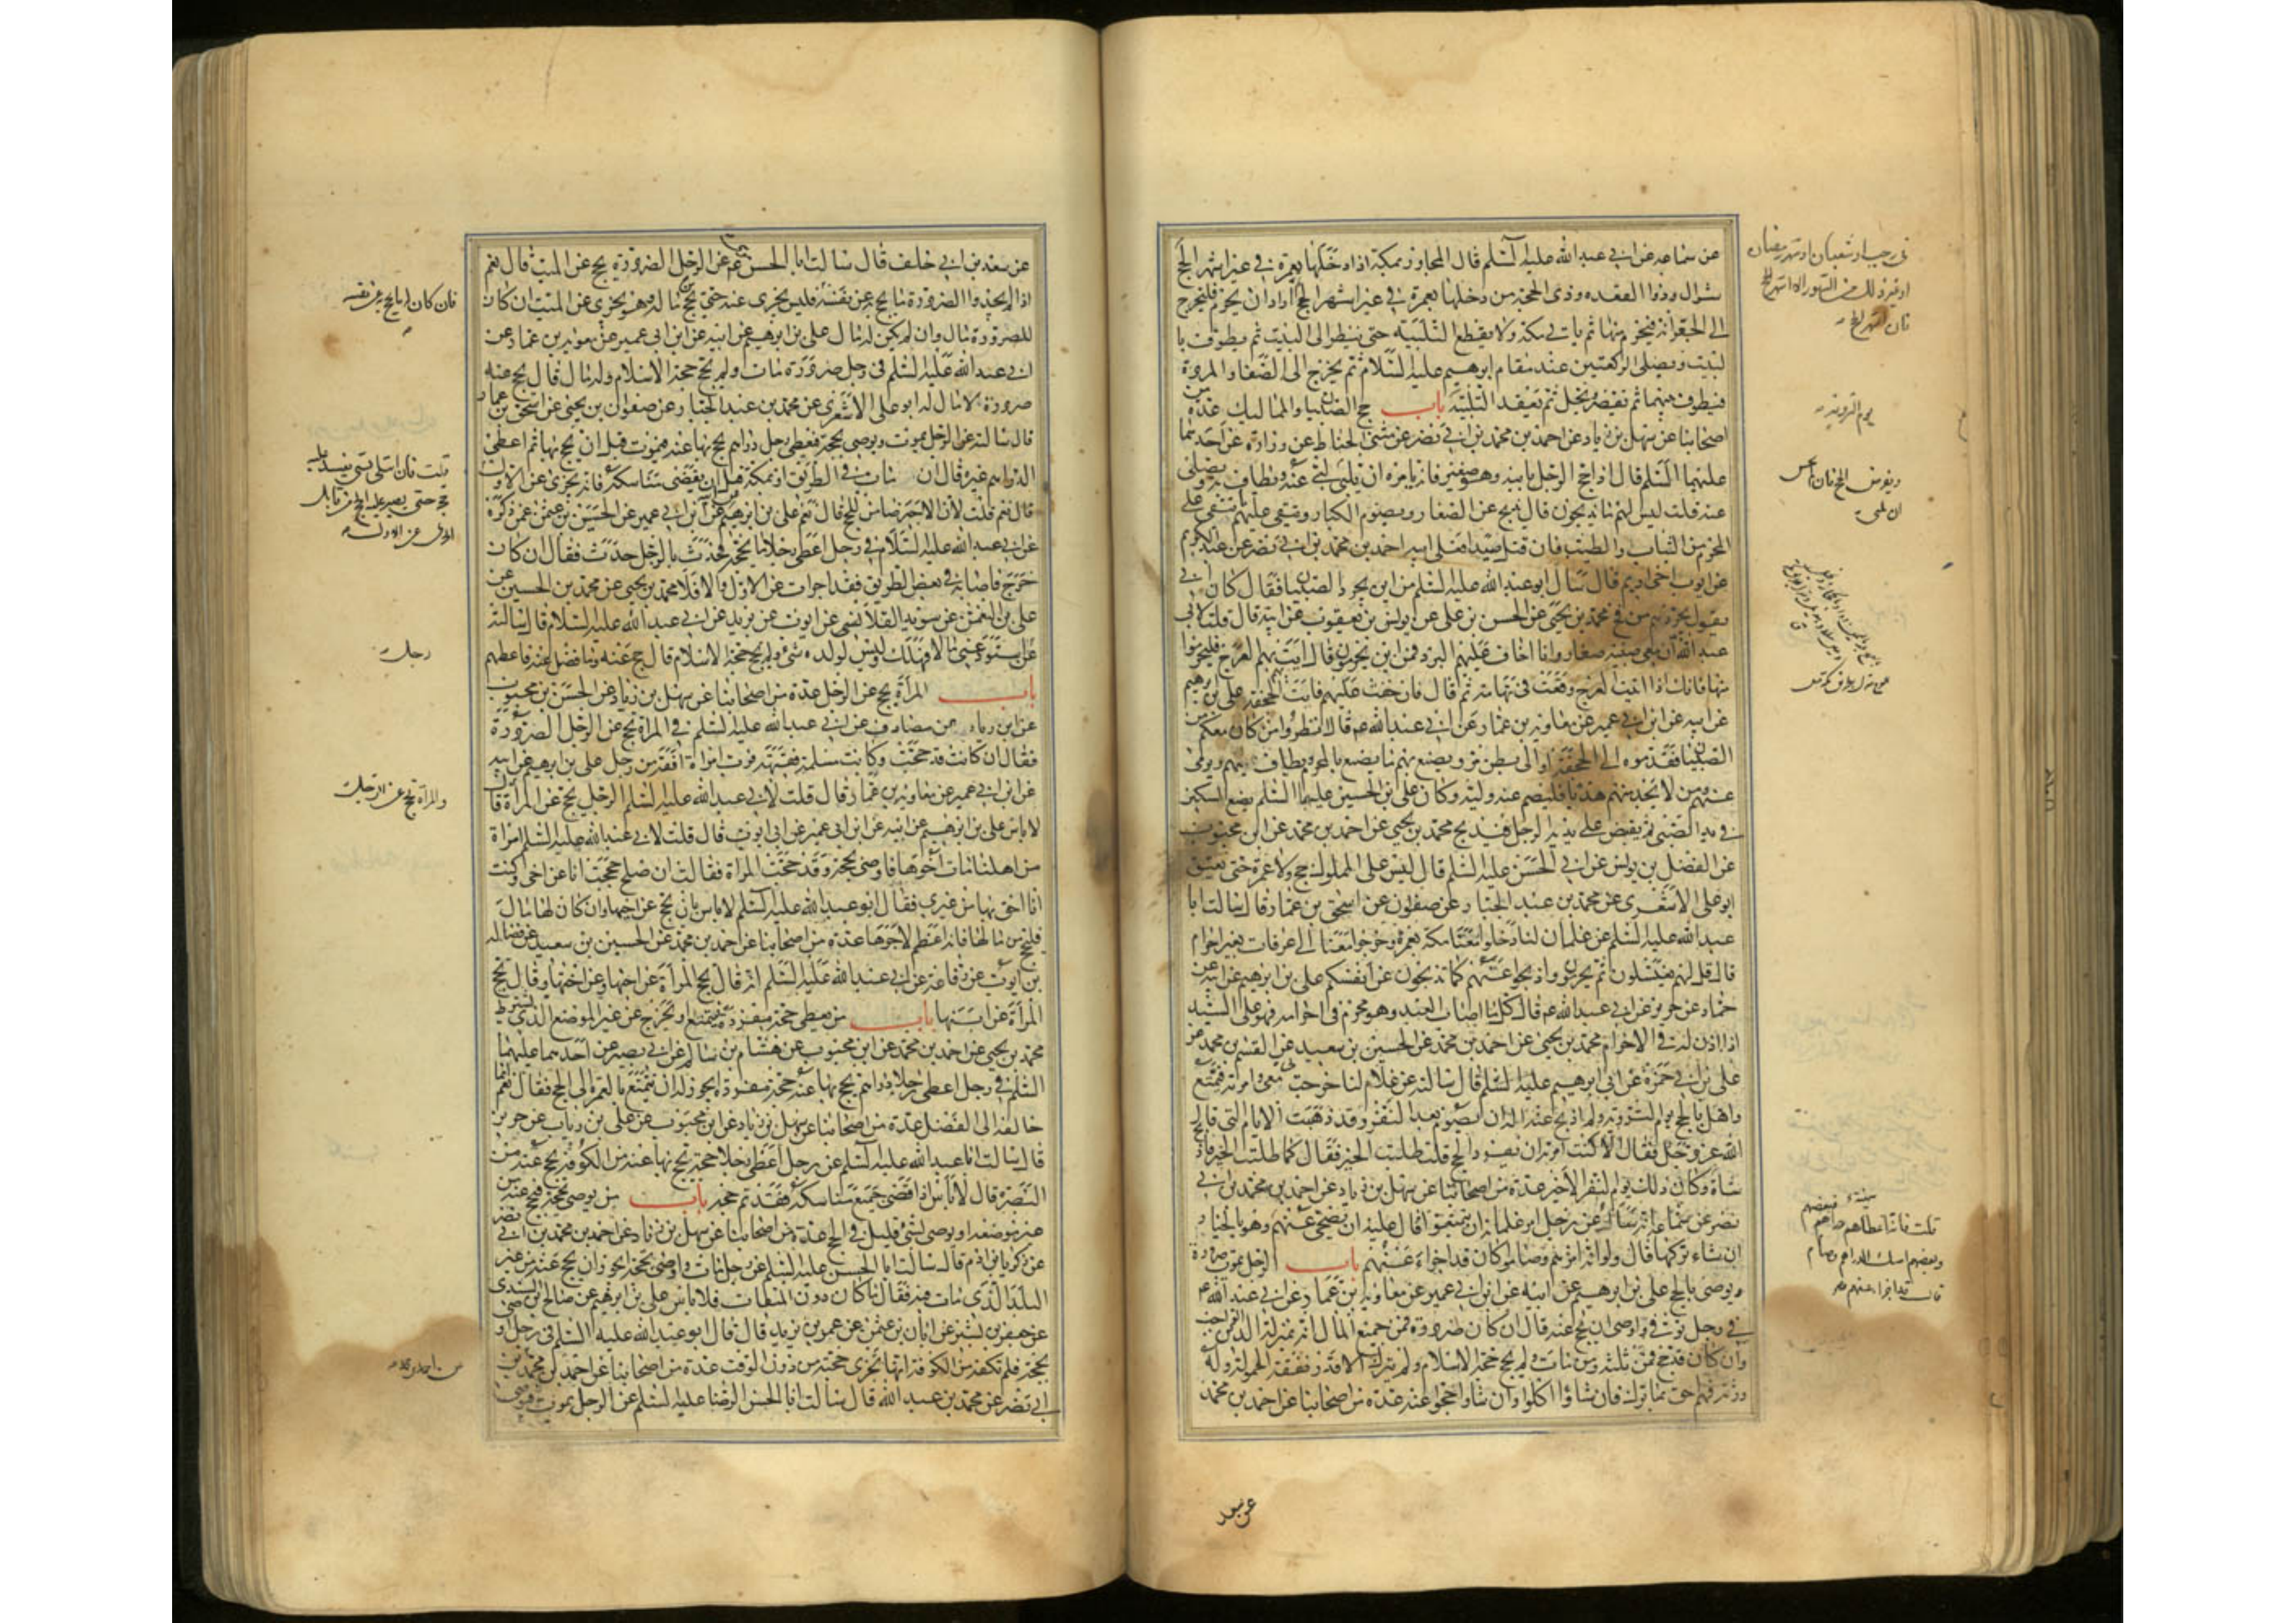 عن سماعه عن ابي عبد الله عليه السلم قال المجاور بمكة اذا دخلها بعمرة في غير اشهر الحج
شوال وذوا القعده وذى الحجة من دخلها بعمرة في غير اشهر الحج ثم اراد ان يحرم فليخرج
الى الجعرانة فيحرم منها ثم ياتي مكة ولا يقطع التلبية حتى ينظر الى البيت ثم يطوف با
لبيت ويصلى الركعتين عند مقام ابرهيم عليه السلام ثم يخرج الى الصفا والمروة
فيطوف بينهما ثم يقصر ويحل ثم يعقد التلبية باب حج الصبيان والمماليك عدة من
اصحابنا عن سهل بن زياد عن احمد بن محمد بن ابي نصر عن مثنى الحناط عن زرارة عن احدهما
عليهما السلم قال اذا حج الرجل بابنه وهو صغير فانه يامره ان يلبى عنه ويطاف به ويصلى
عنه قلت ليس لهم ما يذبحون قال يذبح عن الصغار ويصوم الكبار ويتقى عليهم ما يتقى على
المحرم من الثياب والطيب فان قتل صيدا فعلى ابيه احمد بن محمد بن ابي نصر عن عبد الكريم
عن ايوب اخى اديم قال سال ابو عبد الله عليه السلم من اين يجرد الصبيان فقال كان ابي
يقول يجردهم من فخ محمد بن يحيى عن الحسن بن على عن يونس بن يعقوب عن ابيه قال قلت لابي
عبد الله ان معى صبية صغار وانا اخاف عليهم البرد فمن اين يحرمون قال ايت بهم العرج فليحرموا
منها فانك اذا اتيت العرج وقعت في تهامة ثم قال فان خفت عليهم فايت الجحفة على بن ابرهيم
عن ابيه عن ابن ابي عمير عن معاوية بن عمار عن ابي عبد الله عم قال انظروا من كان معكم من
الصبيان فقدموه الى الجحفة او الى بطن مر ويصنع بهم ما يصنع بالمحرم يطاف بهم ويرمى
عنهم ومن لا يجد منهم هديا فليصم عنه وليه وكان على ابن الحسين عليهما السلم يضع السكين
في يد الصبى ثم يقبض على يديه الرجل فيذبح محمد بن يحيى عن احمد بن محمد عن ابن محبوب
عن الفضل بن يونس عن ابي الحسن عليه السلم قال ليس على المملوك حج ولا عمرة حتى يعتق
ابو على الاشعرى عن محمد بن عبد الجبار عن صفوان عن اسحق بن عمار قال سالت ابا
عبد الله عليه السلم عن غلمان لنا دخلوا معنا مكة بعمرة وخرجوا معنا الى عرفات بغير احرام
قال قل لهم يغتسلون ثم يحرمون واذبحوا عنهم كما تذبحون عن انفسكم على بن ابرهيم عن ابيه عن
حماد عن حريز عن ابي عبد الله عم قال كلما اصاب العبد وهو محرم في احرامه فهو على السيد
اذا اذن له في الاحرام محمد بن يحيى عن احمد بن محمد عن الحسين بن سعيد عن القسم بن محمد عن
على بن ابي حمزة عن ابي ابرهيم عليه السلم قال سالته عن غلام لنا خرجت به معى وامرته فتمتع
واهل بالحج يوم التروية ولم اذبح عنه اله ان يصوم بعد النفر وقد ذهبت الايام التى قال
الله عز وجل فقال الا كنت امرته ان يفرد الحج قلت طلبت الخير فقال كما طلبت الخير فاذبح
شاة وكان ذلك يوم النفر الاخير عدة من اصحابنا عن سهل بن زياد عن احمد بن محمد بن ابي
نصر عن سماعة انه ساله عن رجل امر غلمانه ان يتمتعوا قال عليه ان يضحى عنهم وهو بالخيار
ان شاء تركها قال ولو انه امرهم وصاموا كان قد اجزاء عنهم باب الرجل يموت صرورة
ويوصى بالحج على بن ابرهيم عن ابيه عن ابن ابي عمير عن معاوية بن عمار عن ابي عبد الله عم
في رجل توفى واوصى ان يحج عنه قال ان كان صرورة فمن جميع المال انه بمنزلة الدين الواجب
وان كان قد حج فمن ثلثه ومن مات ولم يحج حجة الاسلام ولم يترك الا قدر نفقة الحمولة وله
ورثة فهم احق بما ترك فان شاؤا اكلوا وان شاوا حجوا عنه عدة من اصحابنا عن احمد بن محمد
في رجب او شعبان او شهر رمضان
او غير ذلك من الشهور الا اشهر الحج
فان اشهر الحج
يوم التروية
ويفرض الحج فان لم يحسن
ان يلبى
قلت فانه اعطاهم
فبعضهم ضحى
وبعضهم امسك الدراهم وصام
قال قد اجزا عنهم
عن سعد
عن سعد بن ابي خلف قال سالت ابا الحسن عم عن الرجل الصرورة يحج عن الميت قال نعم
اذا لم يجد الصرورة ما يحج به عن نفسه فليس يجزى عنه حتى يحج من ماله وهو يجزى عن الميت ان كان
للصرورة مال وان لم يكن له مال على بن ابرهيم عن ابيه عن ابن ابي عمير عن معوية بن عمار عن
ابي عبد الله عليه السلم في رجل صرورة مات ولم يحج حجة الاسلام وله مال قال يحج عنه
صرورة لا مال له ابو على الاشعرى عن محمد بن عبد الجبار عن صفوان بن يحيى عن اسحق بن عمار
قال سالته عن الرجل يموت ويوصى بحجة فيعطى رجل دراهم يحج بها عنه فيموت قبل ان يحج بها ثم اعطى
الدراهم غيره قال ان مات في الطريق او بمكة قبل ان يقضى مناسكه فانه يجزى عن الاول
قال نعم قلت لان الاجير ضامن للحج قال نعم على بن ابرهيم عن ابن ابي عمير عن الحسين بن عثمن عمن ذكره
عن ابي عبد الله عليه السلام في رجل اعطى رجلا ما يحجه فحدث بالرجل حدث فقال ان كان
خرج فاصابه في بعض الطريق فقد اجزات عن الاول والا فلا محمد بن يحيى عن محمد بن الحسين عن
على بن النعمن عن سويد القلا نسى عن ايوب عن بريد عن ابي عبد الله عليه السلام قال سالته
عن استودعنى مالا فهلك وليس لولده شئ ولم يحج حجة الاسلام قال حج عنه وما فضل عنه فاعطهم
باب المرأة تحج عن الرجل عدة من اصحابنا عن سهل بن زياد عن الحسن بن محبوب
عن ابن رياب عن مصادف عن ابي عبد الله عليه السلم في المراة تحج عن الرجل الصرورة
فقال ان كانت قد حجت وكانت مسلمة فقيهة فرب امراة افقه من رجل على بن ابرهيم عن ابيه
عن ابن ابي عمير عن معاوية بن عمار قال قلت لابي عبد الله عليه السلم الرجل يحج عن المراة قال
لا باس على بن ابرهيم عن ابيه عن ابن ابي عمير عن ابي ايوب قال قلت لابي عبد الله عليه السلم امراة
من اهلنا مات اخوها فاوصى بحجة وقد حجت المراة فقالت ان صلح حججت انا عن اخى وكنت
انا احق بها من غيرى فقال ابو عبد الله عليه السلم لا باس بان تحج عن اخيها وان كان لها مال
فلتحج من مالها فانه اعظم لاجرها عدة من اصحابنا عن احمد بن محمد عن الحسين بن سعيد عن فضالة
بن ايوب عن رفاعة عن ابي عبد الله عليه السلم انه قال تحج المراة عن اخيها وعن اختها وقال تحج
المراة عن ابنها باب من يعطى حجة مفردة فيتمتع او يخرج عن غير الموضع الذى يشترط
محمد بن يحيى عن احمد بن محمد عن ابن محبوب عن هشام بن سالم عن ابي بصير عن احدهما عليهما
السلم في رجل اعطى رجلا دراهم يحج بها عنه حجة مفردة ايجوز له ان يتمتع بالعمرة الى الحج فقال نعم انما
خالفه الى الفضل عدة من اصحابنا عن سهل بن زياد عن ابن محبوب عن على بن رياب عن حريز
قال سالت ابا عبد الله عليه السلم عن رجل اعطى رجلا حجة يحج بها عنه من الكوفة فحج عنه من
البصرة قال لا باس اذا قضى جميع مناسكه فقد تم حجه باب من يوصى بحجة فيحج عنه من
غير موضعه او يوصى بشئ قليل في الحج عدة من اصحابنا عن سهل بن زياد عن احمد بن محمد بن ابي نصر
عن زكريا بن ادم قال سالت ابا الحسن عليه السلم عن رجل مات واوصى بحجة ايجوز ان يحج عنه من غير
البلد الذى مات فيه فقال ما كان دون الميقات فلا باس على بن ابرهيم عن صالح بن السندى
عن جعفر بن بشير عن ابان بن عثمن عن عمر بن يزيد قال قال ابو عبد الله عليه السلم في رجل اوصى
بحجة فلم تكفه من الكوفة انها تجزى حجته من دون الوقت عدة من اصحابنا عن احمد بن محمد بن
ابي نصر عن محمد بن عبد الله قال سالت ابا الحسن الرضا عليه السلم عن الرجل يموت فيوصى
فان كان له ما يحج به عن نفسه
قلت فان ابتلى بشئ يفسد عليه
حجه حتى يصير عليه الحج من قابل
ايجزى عن الاول
رجل
والمراة تحج عن الرجل